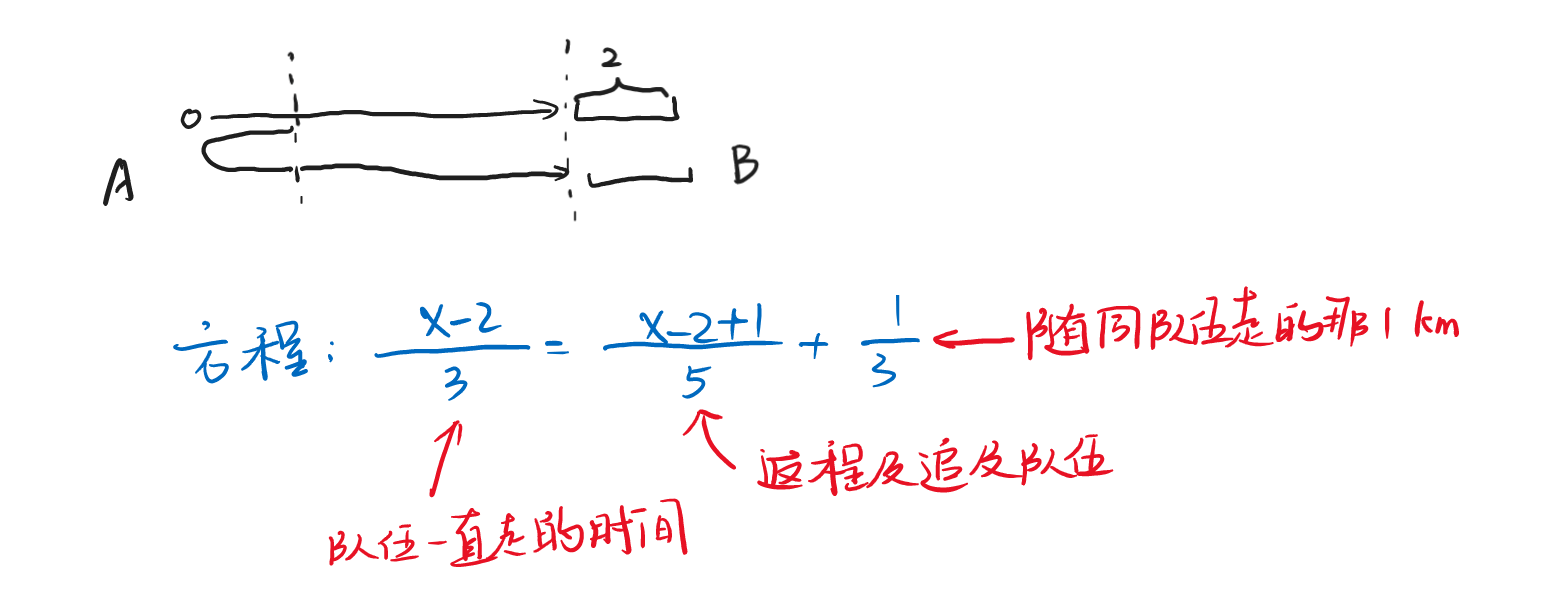 2
A
B
方程: \frac{x-2}{3} = \frac{x-2+1}{5} + \frac{1}{3} ← 随同队伍走的那1km
返程及追及队伍
队伍一直走的时间